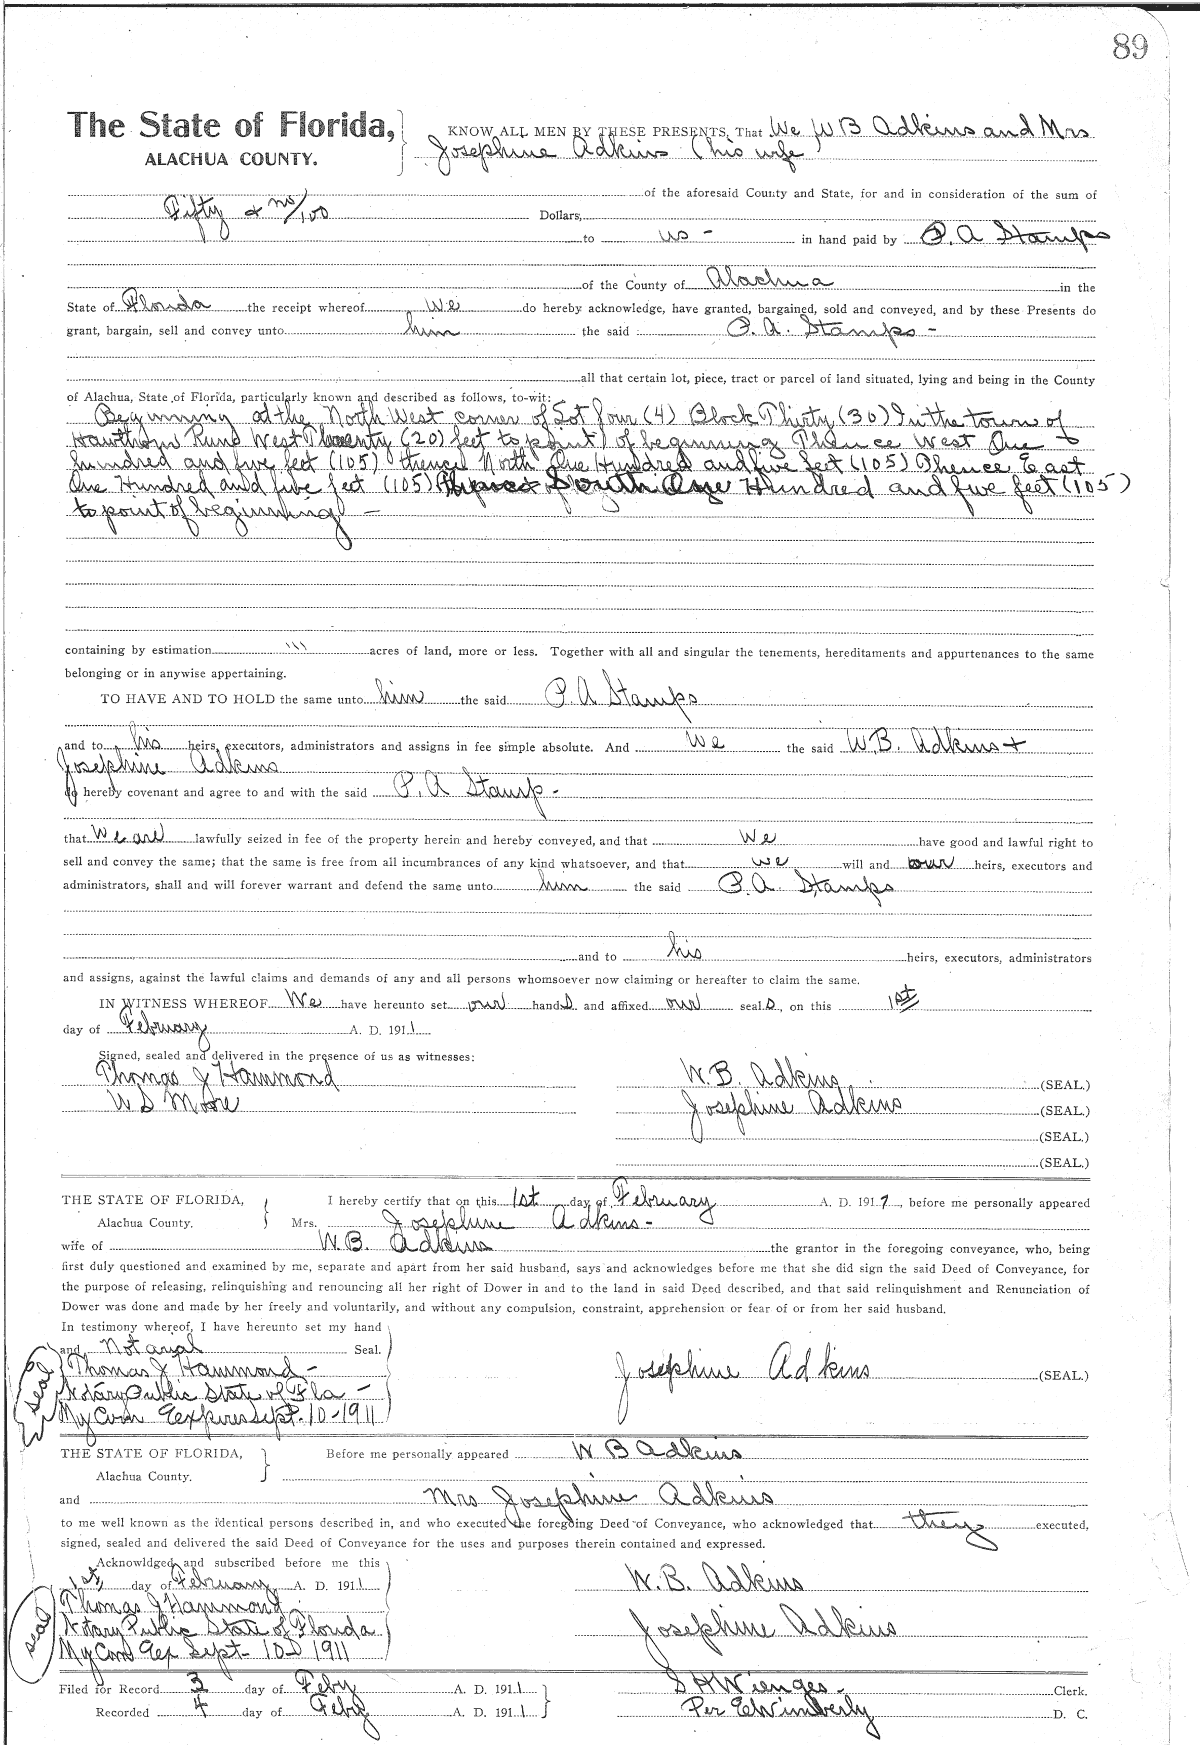 89
The State of Florida, KNOW ALL MEN BY THESE PRESENTS, That We W B Adkins and Mrs
ALACHUA COUNTY. Josephine Adkins (his wife)
of the aforesaid County and State, for and in consideration of the sum of
Fifty & no/100 Dollars,
to us - in hand paid by P. A Stamps
of the County of Alachua in the
State of Florida the receipt whereof We do hereby acknowledge, have granted, bargained, sold and conveyed, and by these Presents do
grant, bargain, sell and convey unto him the said P. A. Stamps -
all that certain lot, piece, tract or parcel of land situated, lying and being in the County
of Alachua, State of Florida, particularly known and described as follows, to-wit:
Beginning at the North West corner of Lot four (4) Block Thirty (30) In the town of
Hawthorn Run West Twenty (20) feet to point of beginning Thence West One
hundred and five feet (105) thence North One Hundred and five feet (105) Thence East
One Hundred and five feet (105) Thence South One Hundred and five feet (105)
to point of beginning -
containing by estimation """ acres of land, more or less. Together with all and singular the tenements, hereditaments and appurtenances to the same
belonging or in anywise appertaining.
TO HAVE AND TO HOLD the same unto him the said P. A Stamps
and to his heirs, executors, administrators and assigns in fee simple absolute. And We the said W.B. Adkins +
Josephine Adkins
do hereby covenant and agree to and with the said P. A Stamp -
that We are lawfully seized in fee of the property herein and hereby conveyed, and that We have good and lawful right to
sell and convey the same; that the same is free from all incumbrances of any kind whatsoever, and that we will and our heirs, executors and
administrators, shall and will forever warrant and defend the same unto him the said P. A. Stamps
and to his heirs, executors, administrators
and assigns, against the lawful claims and demands of any and all persons whomsoever now claiming or hereafter to claim the same.
IN WITNESS WHEREOF We have hereunto set our hands and affixed our seals, on this 1st
day of February A. D. 1911
Signed, sealed and delivered in the presence of us as witnesses:
Thomas J Hammond W. B. Adkins (SEAL.)
W S Moore Josephine Adkins (SEAL.)
(SEAL.)
(SEAL.)
THE STATE OF FLORIDA, I hereby certify that on this 1st day of February A. D. 1917, before me personally appeared
Alachua County. Mrs. Josephine Adkins -
wife of W.B. Adkins the grantor in the foregoing conveyance, who, being
first duly questioned and examined by me, separate and apart from her said husband, says and acknowledges before me that she did sign the said Deed of Conveyance, for
the purpose of releasing, relinquishing and renouncing all her right of Dower in and to the land in said Deed described, and that said relinquishment and Renunciation of
Dower was done and made by her freely and voluntarily, and without any compulsion, constraint, apprehension or fear of or from her said husband.
In testimony whereof, I have hereunto set my hand
and Notarial Seal.
seal Thomas J Hammond - Josephine Adkins (SEAL.)
Notary Public State of Fla -
My Com Expires Sept. 10 - 1911
THE STATE OF FLORIDA, Before me personally appeared W B Adkins
Alachua County.
and Mrs Josephine Adkins
to me well known as the identical persons described in, and who executed the foregoing Deed of Conveyance, who acknowledged that they executed,
signed, sealed and delivered the said Deed of Conveyance for the uses and purposes therein contained and expressed.
Acknowldged and subscribed before me this
1st, day of February A. D. 1911 W. B. Adkins
Thomas J Hammond
seal Notary Public State of Florida Josephine Adkins
My Com Ex Sept- 10 1911
Filed for Record 3 day of Feby A. D. 1911 S H Wienges - Clerk.
Recorded 4 day of Feby A. D. 1911 Per E Wimberly D. C.